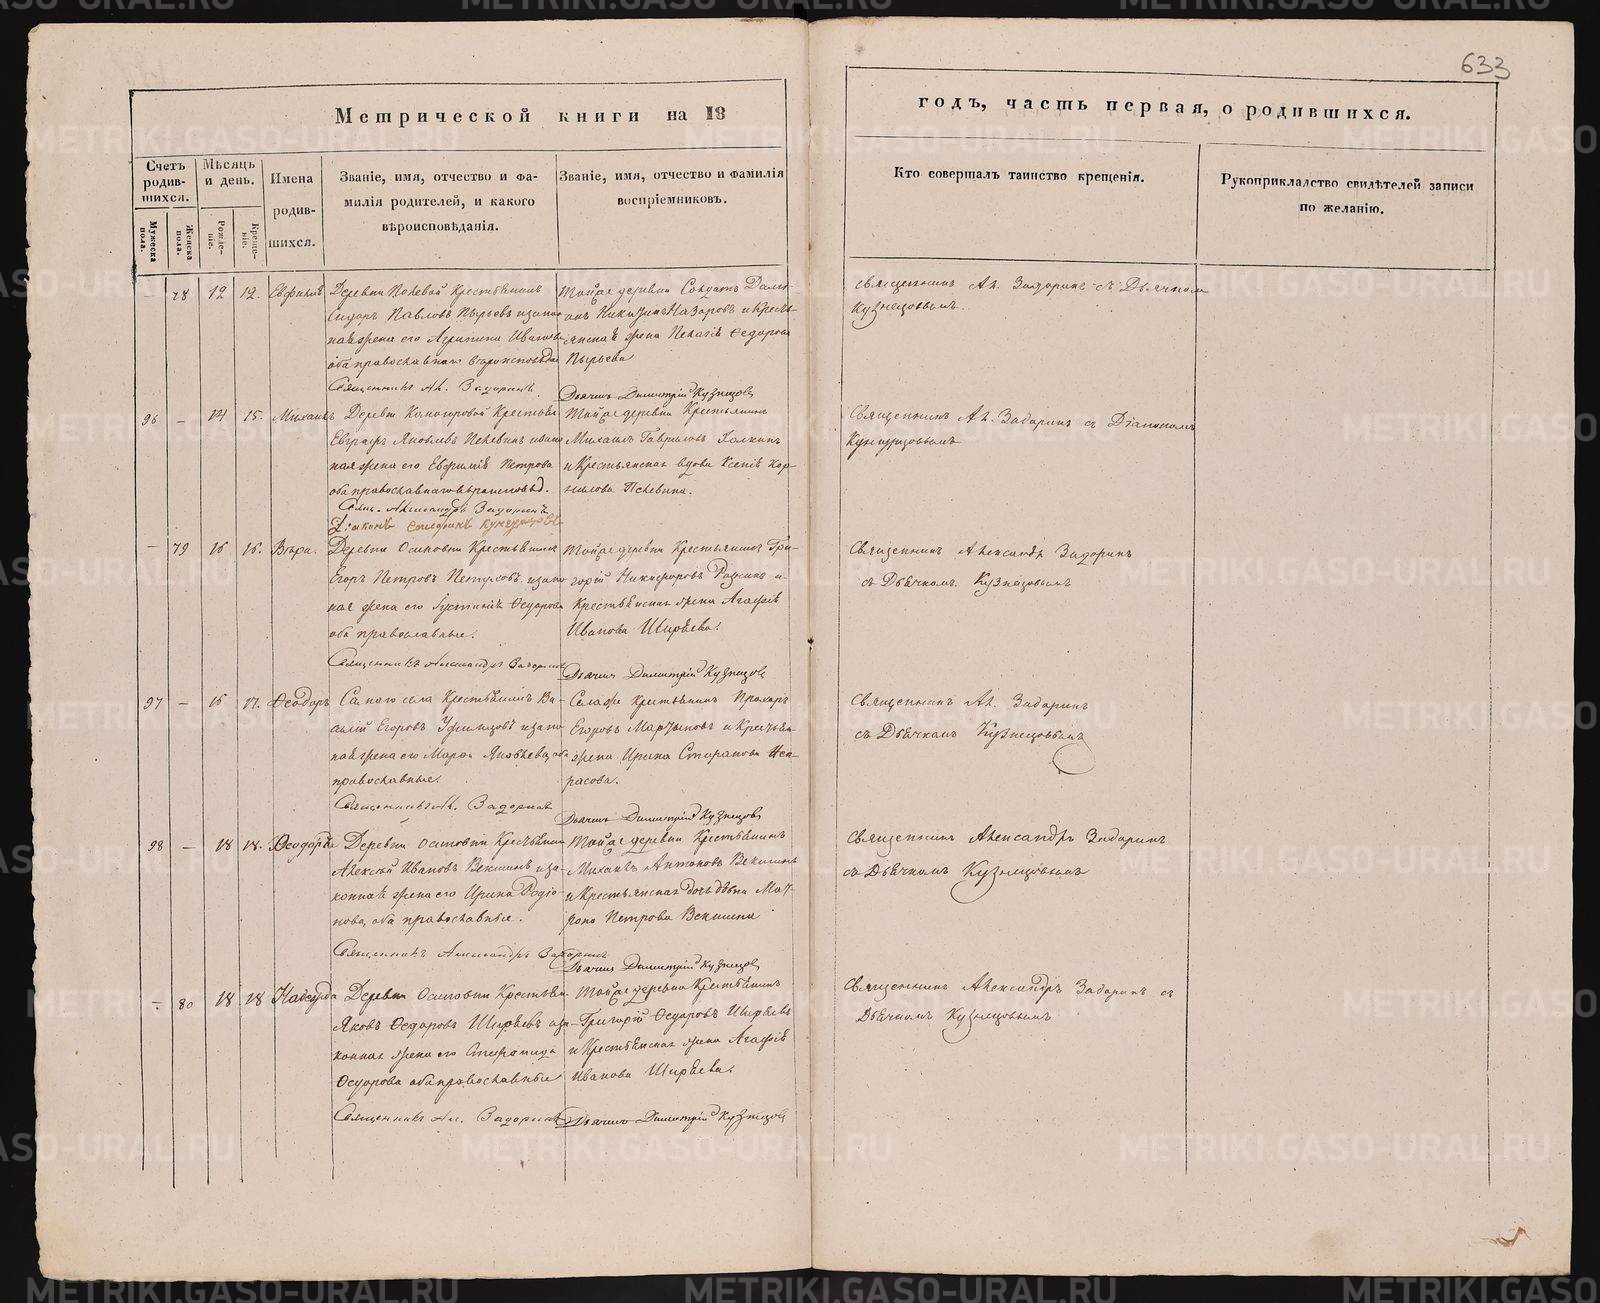 633
Метрической книги на 18
годъ, часть первая, о родившихся.
Счетъ родив-шихся.
Мѣсяцъ и день.
Имена родив-шихся.
Званіе, имя, отчество и фа-
милія родителей, и какого
вѣроисповѣданія.
Званіе, имя, отчество и фамилія
воспріемниковъ.
Кто совершалъ таинство крещенія.
Рукоприкладство свидѣтелей записи
по желанію.
Мужеска пола.
Женска пола.
Рожде-ніе.
Креще-ніе.
78 12 12. Евфимія
Деревни Пелевой Крестьянинъ
Сидоръ Павловъ Пырьевъ
жена его Агрипина Иванова
оба православнаго вѣроисповѣданія
Священникъ Ал. Задоринъ
Тойже деревни Солдатъ
Назаровъ и Кресть-
янская жена Пелагія Ѳедорова
Пырьева
Дьячекъ Димитрій Кузнецовъ
Священникъ Ал. Задоринъ съ Дьячкомъ
Кузнецовымъ.
96 – 14 15. Михаилъ
Деревни
Евграфъ Яковлевъ Пелевинъ
ная жена его Евфимія Петрова
оба православнаго вѣроисповѣд.
Свящ. Александръ Задоринъ
Діаконъ Стефанъ
Тойже деревни Крестьянинъ
Михаилъ Гавриловъ
и Крестьянская вдова Ксенія Кор-
нилова Пелевина.
Священникъ Ал. Задоринъ съ Діакономъ
– 79 16 16. Вѣра.
Деревни Осиповки Крестьянинъ
Егоръ Петровъ
ная жена его Ѳедорова
оба православные.
Священникъ Александръ Задоринъ
Тойже деревни Крестьянинъ Гри-
горій Никифоровъ и
Крестьянская жена Агафія
Иванова Ширяева.
Дьячекъ Димитрій Кузнецовъ
Священникъ Александръ Задоринъ
съ Дьячкомъ Кузнецовымъ
97 – 16 17. Ѳеодоръ
Самаго села Крестьянинъ Ва-
силій Егоровъ
ная жена его Яковлева, оба
православные.
Священникъ Ал. Задоринъ
Селаже Крестьянинъ
Егоровъ Мартыновъ и Крестьян.
жена Ирина Стефанова Нек-
расова.
Дьячекъ Димитрій Кузнецовъ
Священникъ Ал. Задоринъ
съ Дьячкомъ Кузнецовымъ
98 – 18 18.
Деревни Осиповки Крестьянинъ
Алексѣй Ивановъ Векшинъ и за-
конная жена его Ирина Родіо-
нова, оба православные.
Священникъ Александръ Задоринъ
Тойже деревни Крестьянинъ
Михаилъ Антоновъ Векшинъ
и Крестьянская дочь дѣвка Мат-
рона Петрова Векшина
Дьячекъ Димитрій Кузнецовъ
Священникъ Александръ Задоринъ
съ Дьячкомъ Кузнецовымъ
– 80 18 18 Надежда
Деревни Осиповки Крестьян.
Яковъ Ѳедоровъ Ширяевъ и за-
конная жена его Стефанида
Ѳедорова оба православные
Священникъ Ал. Задоринъ
Тойже деревни Крестьянинъ
Григорій Ѳедоровъ Ширяевъ
и Крестьянская жена Агафія
Иванова Ширяева.
Дьячекъ Димитрій Кузнецовъ
Священникъ Александръ Задоринъ съ
Дьячкомъ Кузнецовымъ
METRIKI.GASO-URAL.RU